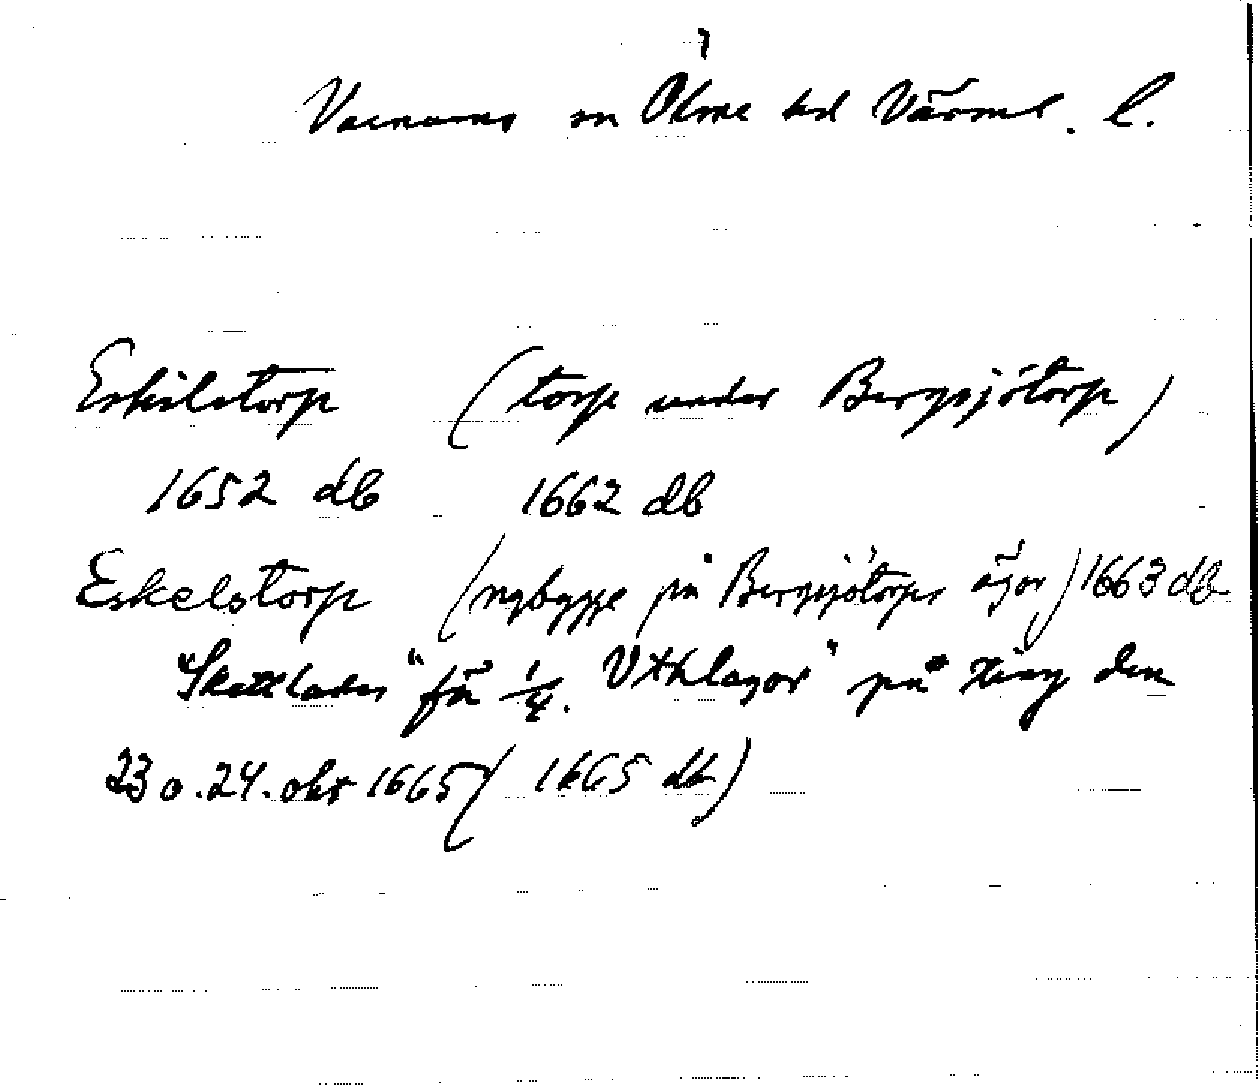 Varnums sn Ölme hd Värml. l.
Eskilstorp (torp under Bergsjötorp)
1652 db 1662 db
Eskelstorp (nybygge på Bergsjötorps ägor) 1663 db
"Skattlades" för 1/4. Uthlagor" på ting den
23 o. 24. okt 1665 (1665 db)